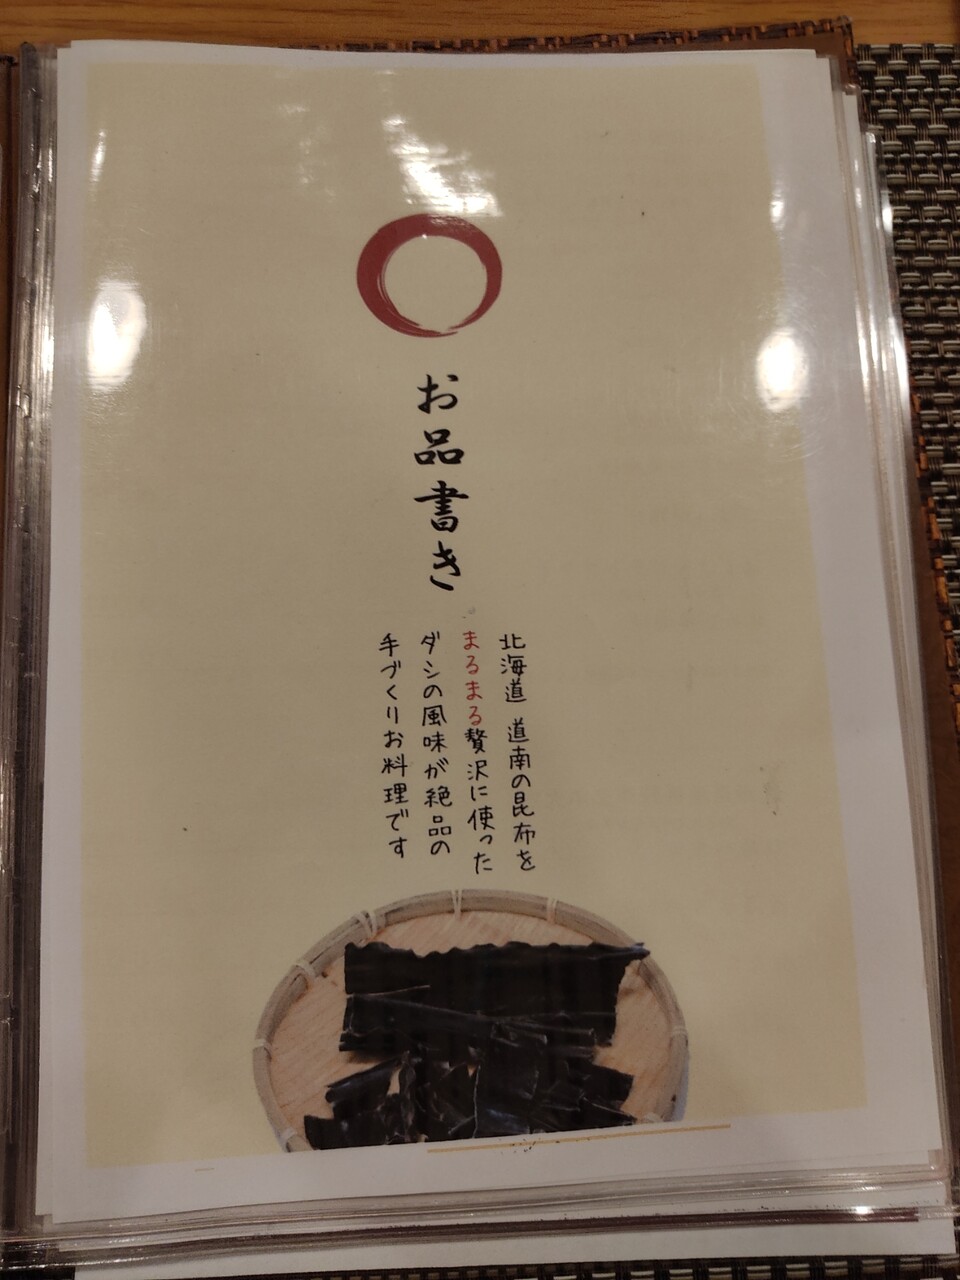 お品書き
北海道 道南の昆布を
まるまる贅沢に使った
ダシの風味が絶品の
手づくりお料理です